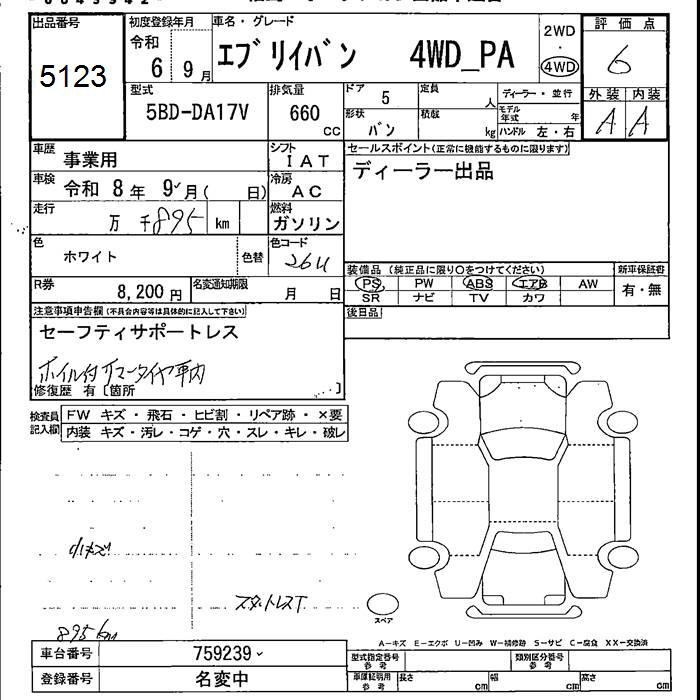 出品番号
5123
初度登録年月
令和
6 9月
車名・グレード
エブリイバン 4WD_PA
2WD
・
4WD
評価点
6
型式
5BD-DA17V
排気量
660
CC
ドア 5
形状 バン
定員 人
積載 kg
ディーラー・並行
モデル年式 年
ハンドル 左・右
外装 内装
A A
車歴 事業用
シフト IAT
車検 令和 8年 9月( 日)
冷房 AC
走行 万 千 895 km
燃料 ガソリン
色 ホワイト 色替
色コード 26U
R券 8,200円
名変通知期限 月 日
セールスポイント(正常に機能するものに限ります)
ディーラー出品
装備品 (純正品に限り〇をつけてください)
新車保証書
PS PW ABS エアB AW
SR ナビ TV カワ
有・無
後日品
注意事項申告欄(不具合内容等は具体的に記入して下さい)
セーフティサポートレス
ホイル付サマータイヤ車内
修復歴 有〔箇所 〕
検査員記入欄
FW キズ・飛石・ヒビ割・リペア跡・×要
内装 キズ・汚レ・コゲ・穴・スレ・キレ・破レ
小キズ
スタットレスT
895km
スペア
A-キズ E-エクボ U-凹み W-補修跡 S-サビ C-腐食 XX-交換済
車台番号 759239
登録番号 名変中
型式指定番号 参考
類別区分番号 参考
車庫証明用 参考
長さ cm
幅 cm
高さ cm